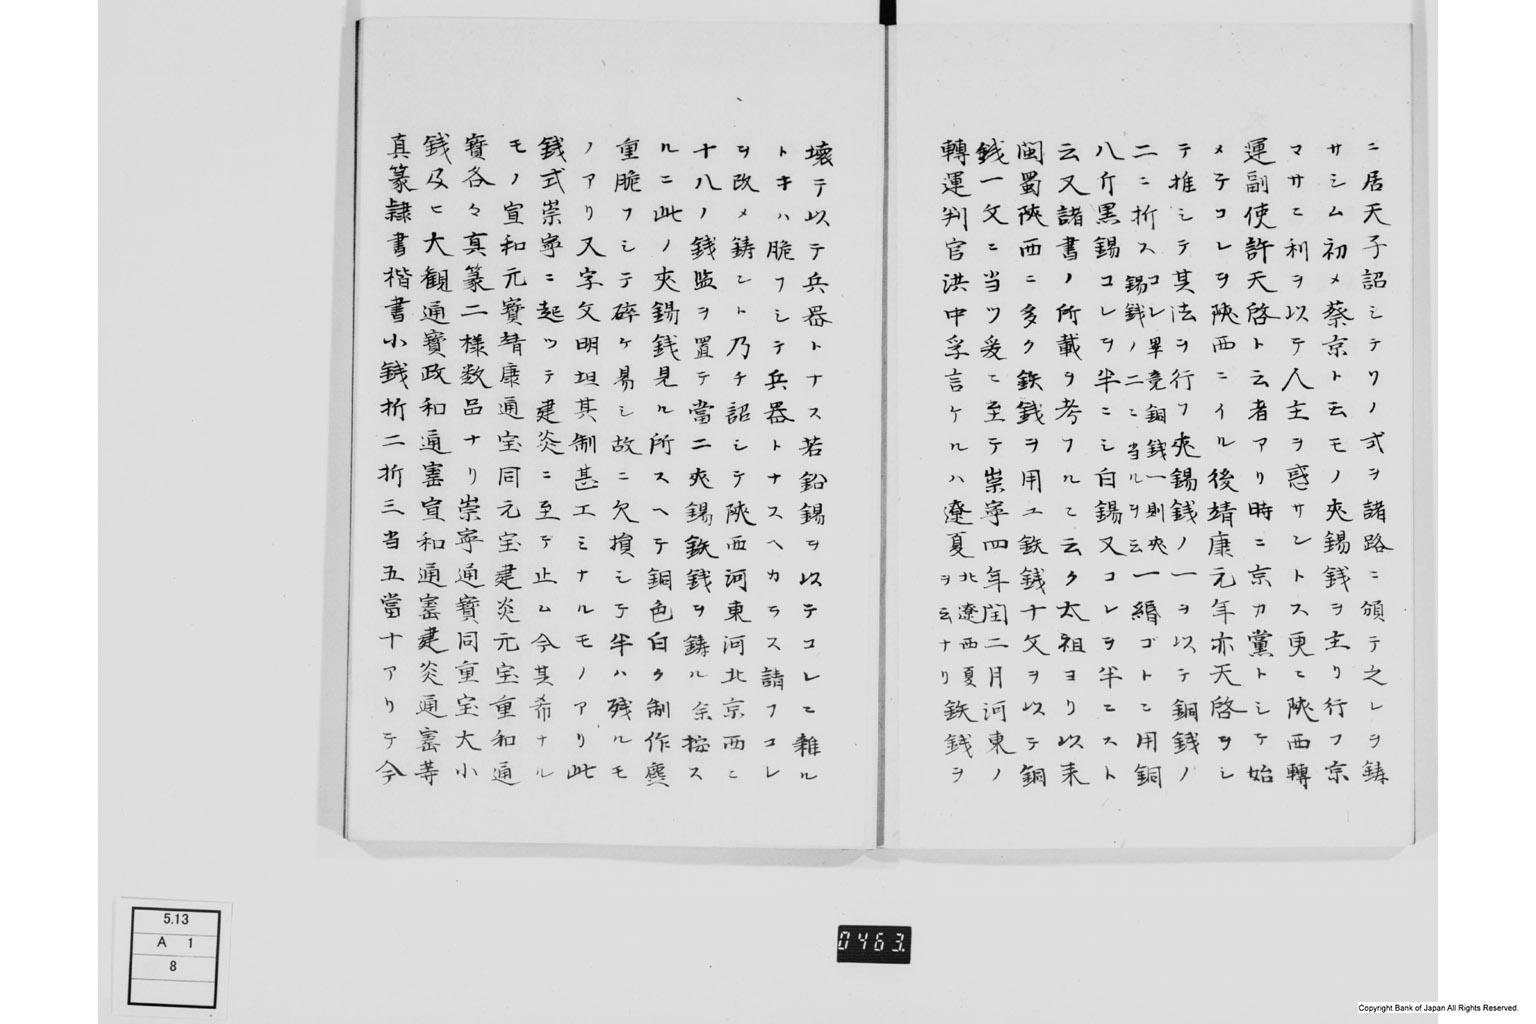 ニ居天子詔シテリノ式ヲ諸路ニ頒テ之レヲ鋳
サシム初メ蔡京ト云モノ夾錫銭ヲ主リ行フ京
マサニ利ヲ以テ人主ヲ惑サントス更ニ陜西轉
運副使許天啓ト云者アリ時ニ京カ黨トシテ始
メテコレヲ陜西ニイル後靖康元年亦天啓ヲシ
テ推シテ其法ヲ行フ夾錫銭ノ一ヲ以テ銅銭ノ
二ニ折ス
コレ畢竟銅銭一則夾
錫銭ノ二ニ当ルヲ云
一緡ゴトニ用銅
八斤黒錫コレヲ半ニシ白錫又コレヲ半ニスト
云又諸書ノ所載ヲ考フルニ云ク太祖ヨリ以来
閩蜀陜西ニ多ク鉄銭ヲ用ユ鉄銭十文ヲ以テ銅
銭一文ニ当ツ爰ニ至テ崇寧四年閏二月河東ノ
轉運判官洪中孚言ケルハ遼夏
北遼西夏
ヲ云ナリ
鉄銭ヲ
壊テ以テ兵器トナス若鉛錫ヲ以テコレニ雜ル
トキハ脆フシテ兵器トナスヘカラス請フコレ
ヲ改メ鋳ント乃チ詔シテ陜西河東河北京西ニ
十八ノ銭監ヲ置テ當二夾錫鉄銭ヲ鋳ル余按ス
ルニ此ノ夾錫銭見ル所スヘテ銅色白ク制作麁
重脆フシテ碎ケ易シ故ニ欠損シテ半ハ残ルモ
ノアリ又字文明坦其制甚エミナルモノアリ此
銭式崇寧ニ起ツテ建炎ニ至テ止ム今其希ナル
モノ宣和元寳靖康通宝同元宝建炎元宝重和通
寳各々真篆二様数品ナリ崇寧通寳同重宝大小
銭及ヒ大観通寳政和通寳宣和通寳建炎通寳等
真篆隷書楷書小銭折二折三当五當十アリテ今
5.13
A 1
8
0463.
Copyright Bank of Japan All Rights Reserved.